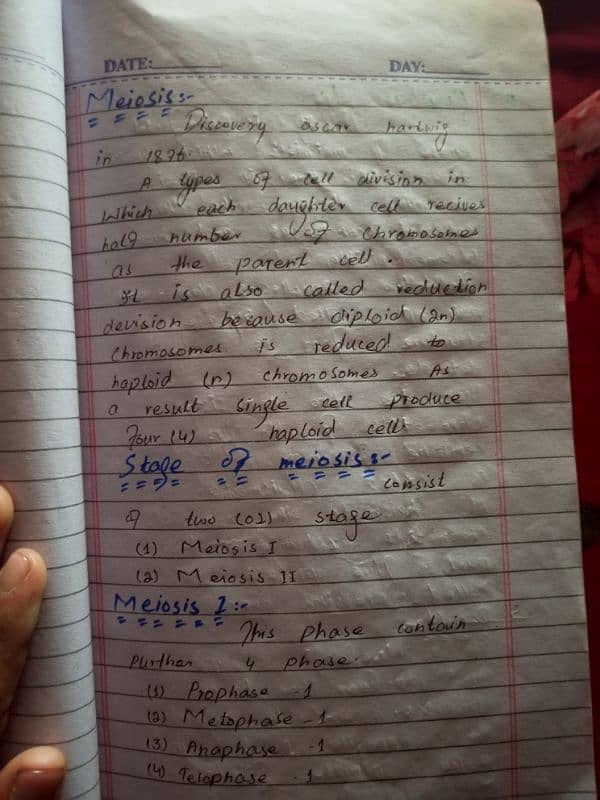 DATE:________ DAY:________
Meiosis:-
Discovery oscar hartwig
in 1876.
A types of cell division in
which each daughter cell recives
half number of chromosomes
as the parent cell.
It is also called reduction
devision because diploid (2n)
chromosomes is reduced to
haploid (n) chromosomes As
a result single cell produce
four (4) haploid cell.
Stage of meiosis:-
consist
of two (02) stage
(1) Meiosis I
(2) Meiosis II
Meiosis I:-
This phase contain
further 4 phase.
(1) Prophase -1
(2) Metaphase -1
(3) Anaphase -1
(4) Telophase -1